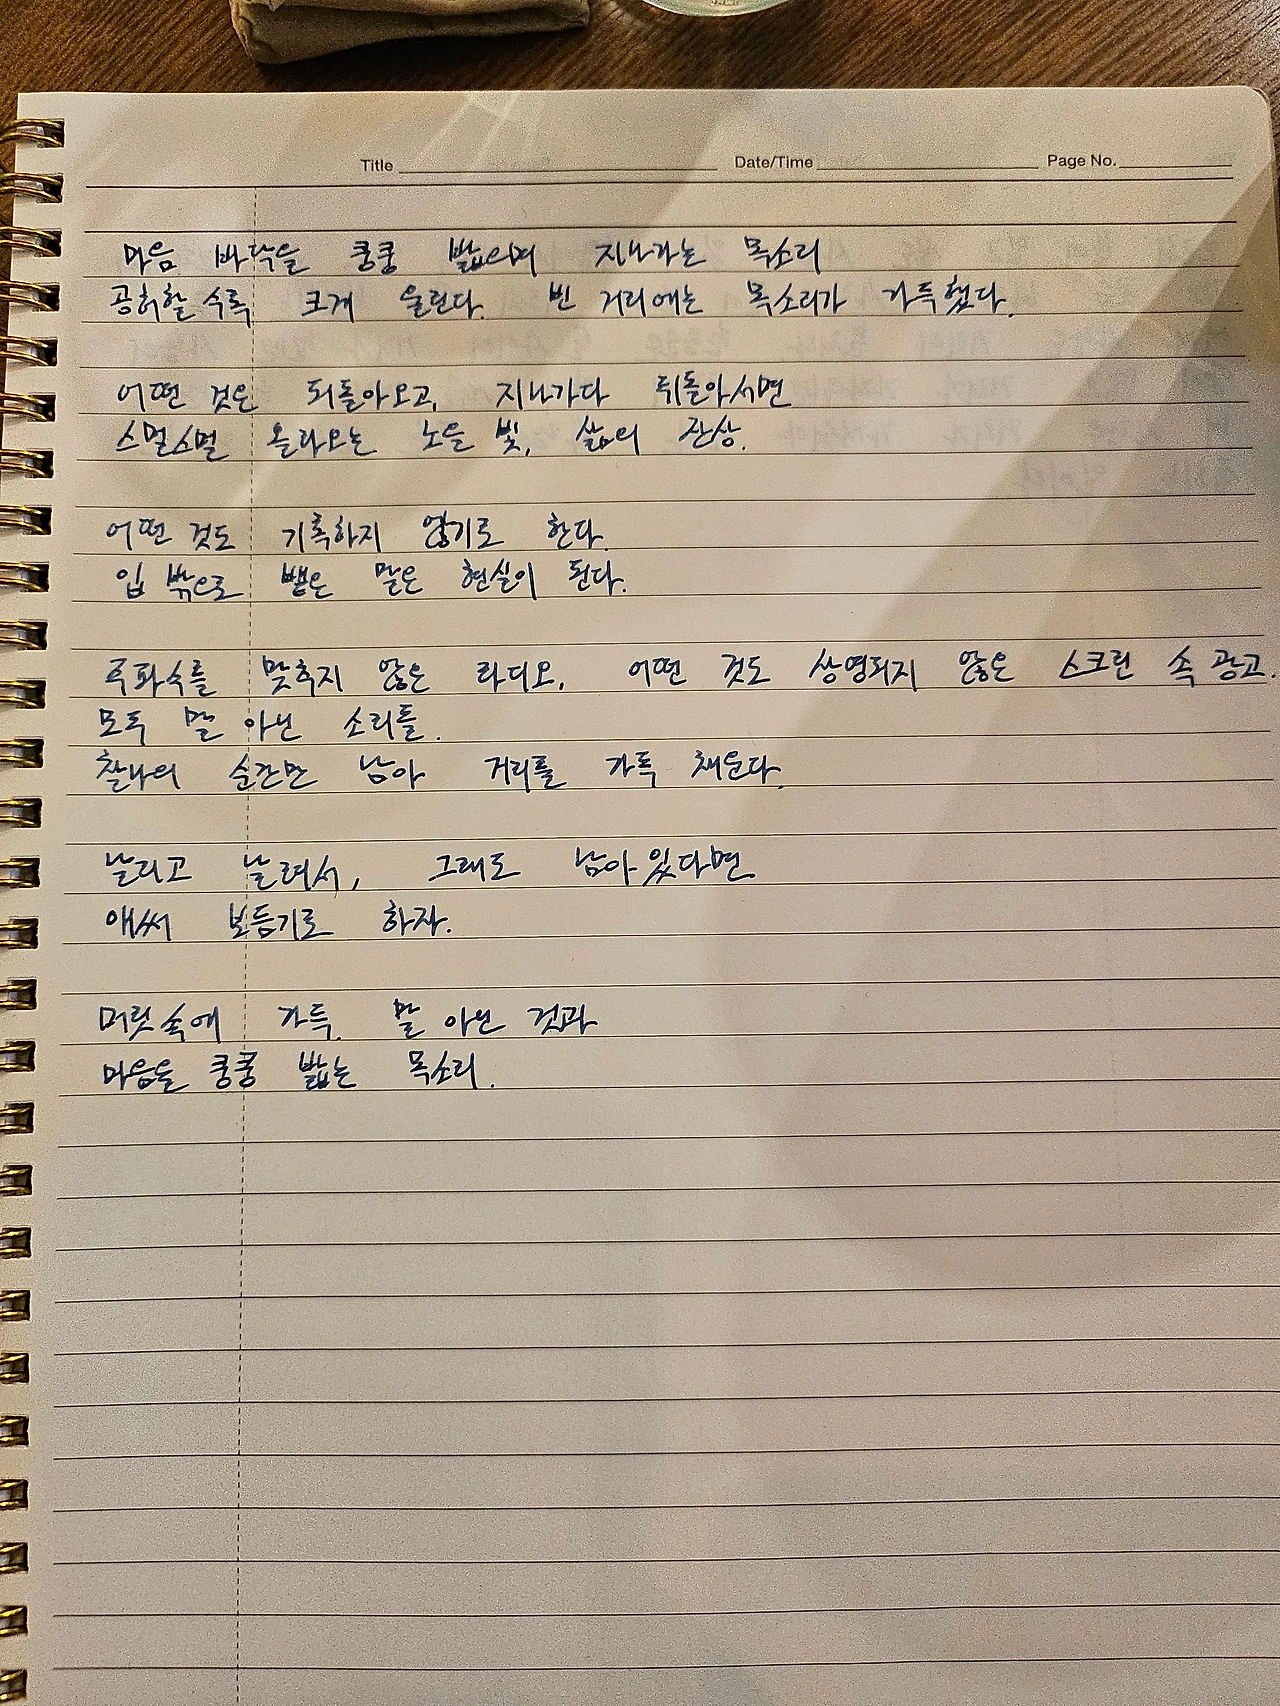 Title Date/Time Page No.
마음 바닥을 쿵쿵 밟으며 지나가는 목소리
공허할수록 크게 울린다. 빈 거리에는 목소리가 가득했다.
어떤 것은 되돌아오고, 지나가다 뒤돌아서면
스멀스멀 올라오는 노을 빛, 삶의 잔상.
어떤 것도 기록하지 않기로 한다.
입 밖으로 뱉은 말은 현실이 된다.
주파수를 맞추지 않은 라디오, 어떤 것도 상영되지 않은 스크린 속 광고.
모두 말 아닌 소리들.
찰나의 순간만 남아 거리를 가득 채운다.
날리고 날려서, 그래도 남아있다면
애써 보듬기로 하자.
머릿속에 가득. 말 아닌 것과
마음을 쿵쿵 밟는 목소리.